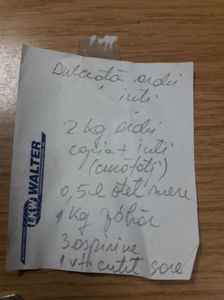 Dulceață ardei
iuți
2 kg ardei
capia + iuți
(curățați)
0,5 l oțet mere
1 kg zăhăr
3 aspirine
1 vf cuțit sare
LKW WALTER